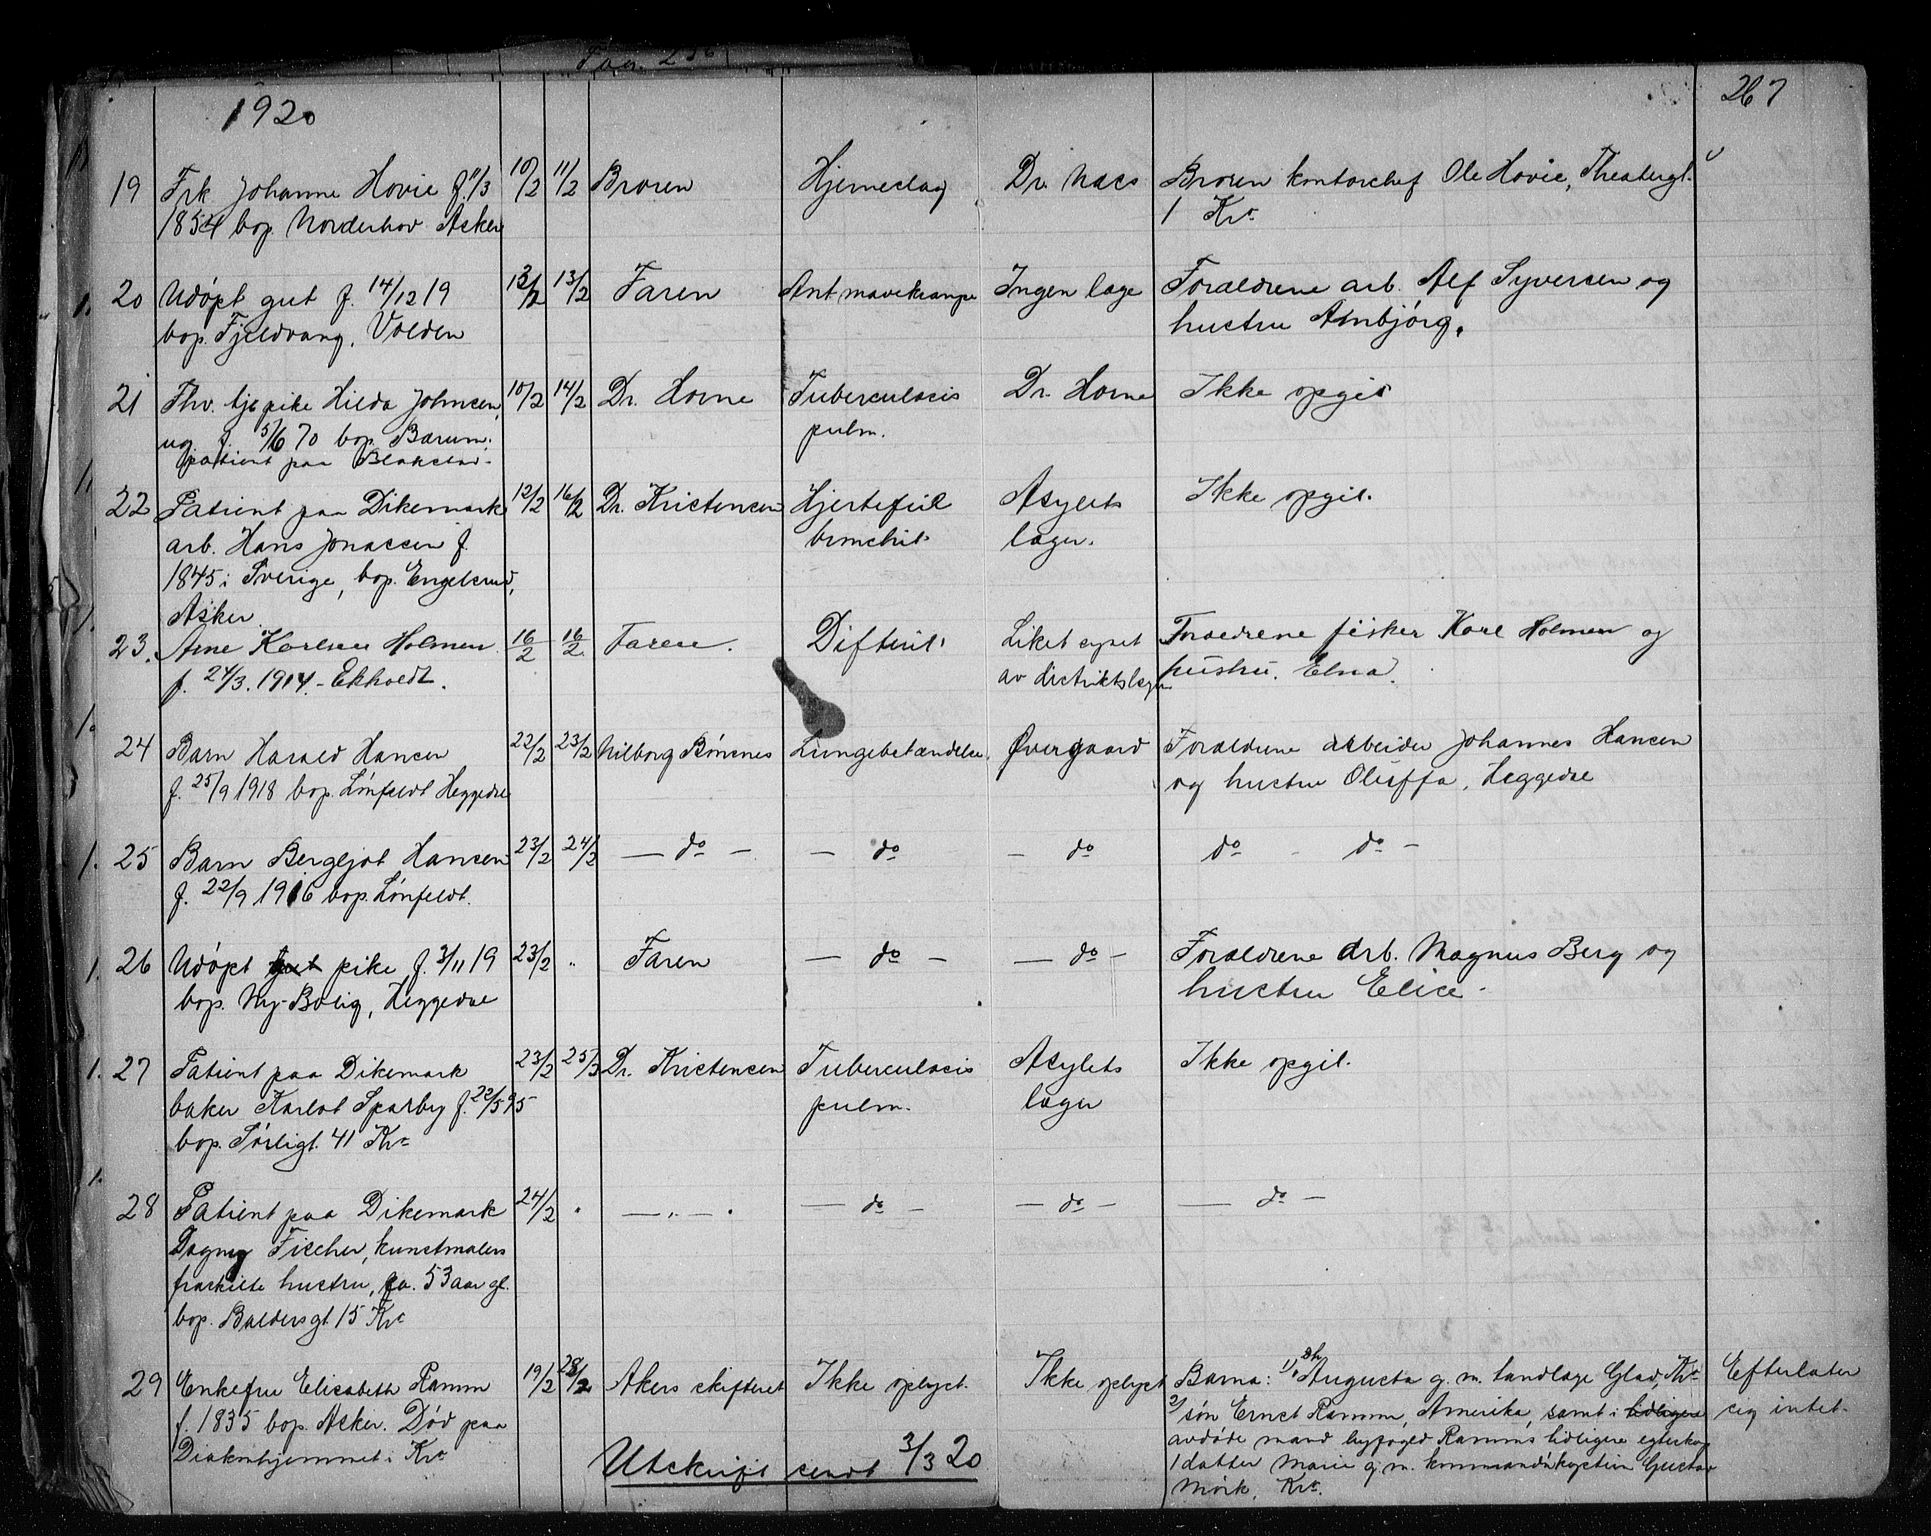 1920
267
19 Frk Johanne Hovie f. 11/3 10/2 11/2 Broren Hjerneslag Dr. Naes Broren kontorchef Ole Hovie, Theatergt.
1854 bop. Norderhov Asker 1 Kra
20 Udöpt gut f. 14/12 19 12/2 13/2 Faren Ant mavekrampe Ingen læge Forældrene arb. Alf Syversen og
bop. Fjeldvang, Volden hustru Ambjörg.
21 Fhv. tjepike Hilda Johnsen, 10/2 14/2 Dr. Horne Tuberculosis Dr. Horne Ikke opgit
ug f. 5/6 70 bop. Bærum. pulm.
patient paa Blakstad.
22 Patient paa Dikemark 12/2 16/2 Dr. Kristensen Hjertefeil Asylets Ikke opgit.
arb. Hans Jonassen f. bronchit læger.
1845 i Sverige, bop. Engelsrud,
Asker.
23. Arne Karlsen Holmen 16/2 16/2 Faren. Difterit Liket synet Forældrene fisker Karl Holmen og
f. 24/3. 1914. - Ekholdt. av distriktslægen hustru. Elna.
24 Barn Harald Hansen 22/2 23/2 Vilborg Bönsnes Lungebetændelse Övergaard Forældrene arbeider Johannes Hansen
f. 25/9 1918 bop. Lönfeldt Heggedal og hustru Oluffa, Heggedal
25 Barn Bergljot Hansen 23/2 24/2 — do — — do — do do - do -
f. 22/9 1916 bop. Lönfeldt.
26 Udöpt gut pike f. 3/11 19 23/2 " Faren — do — — do — Forældrene arb. Magnus Berg og
bop. Ny-Bolig, Heggedal hustru Elise.
27 Patient paa Dikemark 23/2 25/3 Dr. Kristensen Tuberculosis Asylets Ikke opgit.
baker Karlot Sparby f. 22/5 95 pulm. læger
bop. Sörligt. 41 Kra
28 Patient paa Dikemark 24/2 " — " — — do — — do — — do —
Dagny Fischer, kunstmalers
fraskilte hustru, ca. 53 aar gl.
bop. Baldersgt 15 Kra
29 Enkefru Elisabeth Ramm 19/2 28/2 Akers skifteret Ikke oplyst. Ikke oplyst Barna: 1/ Augusta g. m. tandlæge Glad, Kra Efterlater
f. 1835 bop. Asker. Död paa 2/ sön Ernst Ramm, Amerika, samt i tidligere sig intet.
Diakonhjemmet i Kra avdöde mand byfogd Ramms tidligere egteskap
1 datter Marie g. m. kommandörkaptein Gustav
Mörk, Kra.
Utskrift sendt 3/3 20